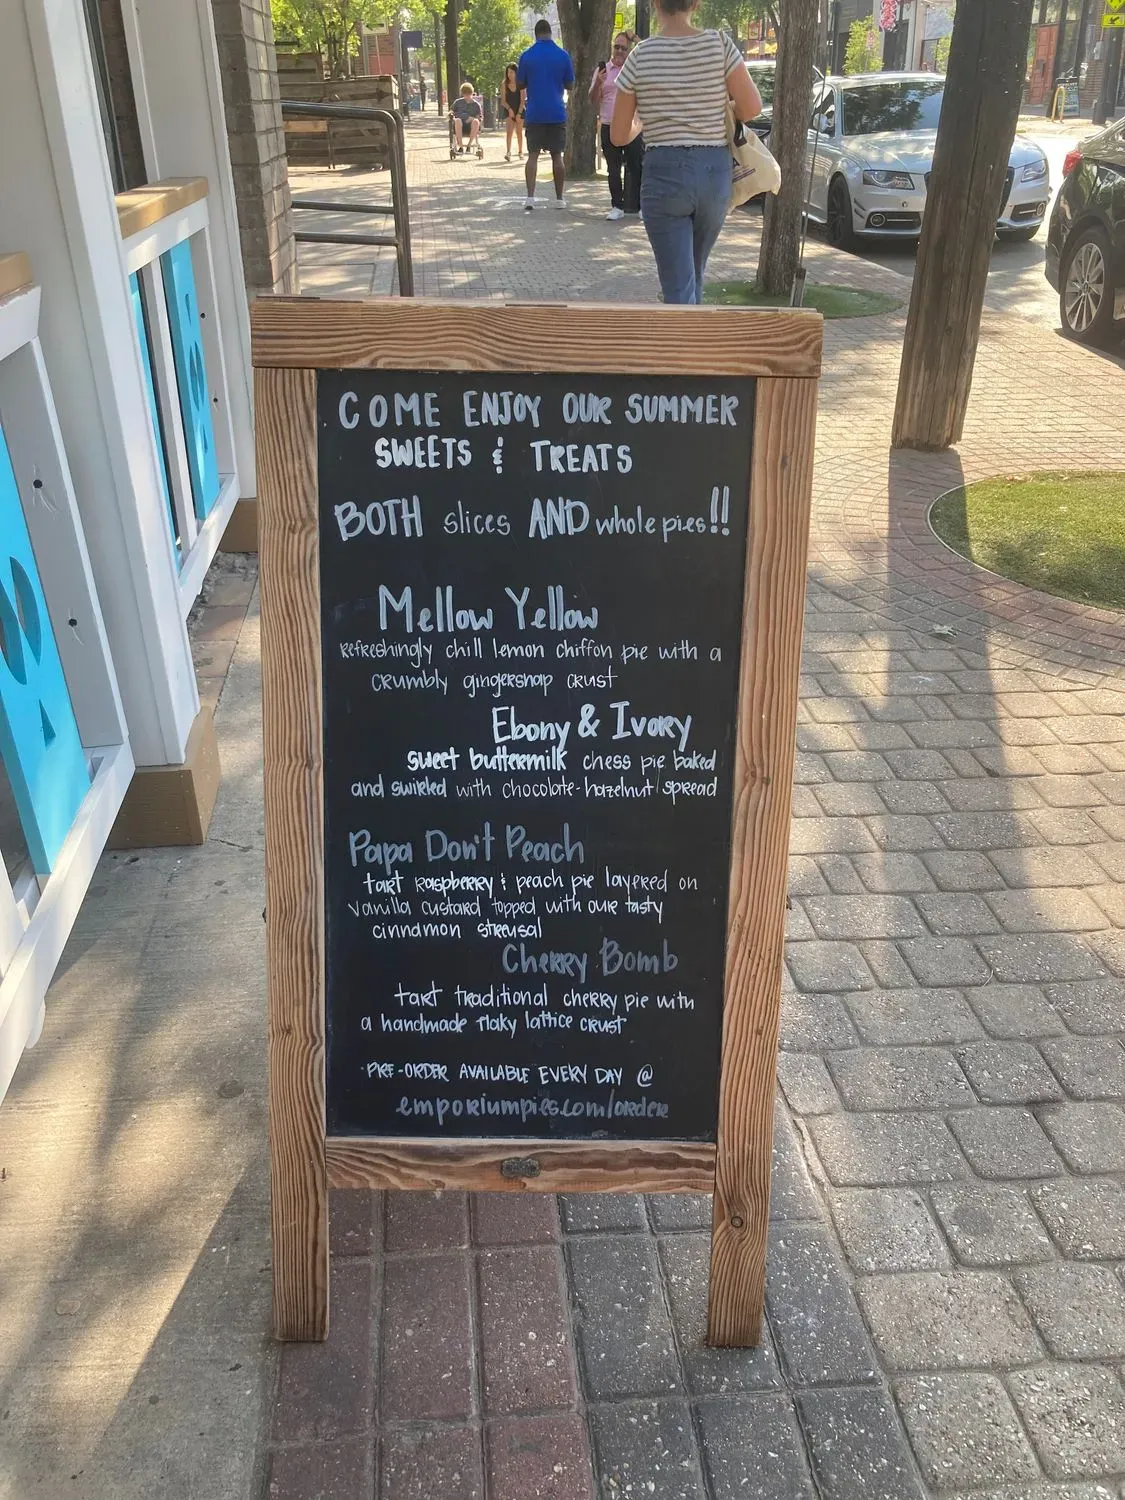 COME ENJOY OUR SUMMER
SWEETS & TREATS
BOTH slices AND whole pies!!
Mellow Yellow
Refreshingly chill lemon chiffon pie with a
crumbly gingersnap crust
Ebony & Ivory
sweet buttermilk chess pie baked
and swirled with chocolate-hazelnut spread
Papa Don't Peach
tart raspberry & peach pie layered on
vanilla custard topped with our tasty
cinnamon streusal
Cherry Bomb
tart traditional cherry pie with
a handmade flaky lattice crust
PRE-ORDER AVAILABLE EVERY DAY @
emporiumpies.com/order